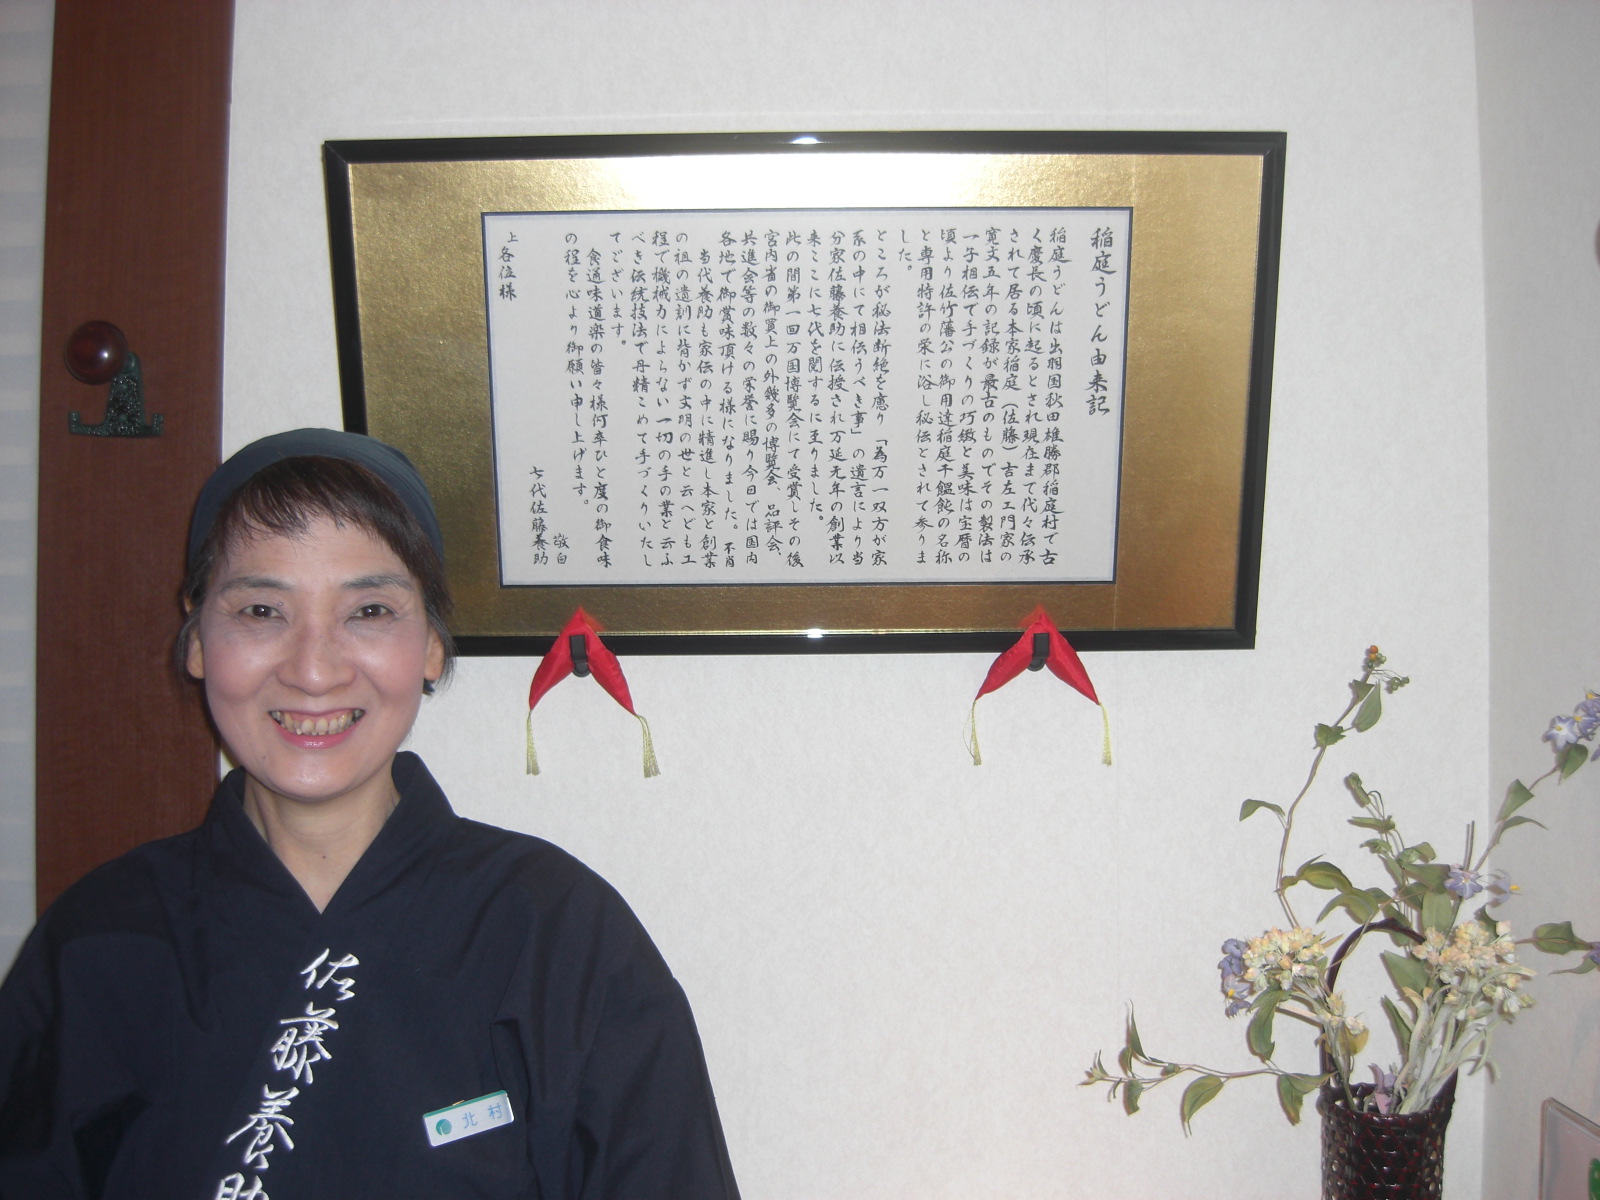 稲庭うどん由来記
稲庭うどんは出羽国秋田雄勝郡稲庭村で古
く慶長の頃に起るとされ現在まで代々伝承
されて居る本家稲庭（佐藤）吉左エ門家の
寛文五年の記録が最古のものでその製法は
一子相伝で手づくりの巧緻と美味は宝暦の
頃より佐竹藩公の御用達稲庭干饂飩の名称
と専用特許の栄に浴し秘伝とされて参りま
した。
ところが秘法断絶を慮り「為万一双方が家
系の中にて相伝うべき事」の遺言により当
分家佐藤養助に伝授され万延元年の創業以
来ここに七代を閲するに至りました。
此の間第一回万国博覧会にて受賞しその後
宮内省の御買上の外幾多の博覧会、品評会、
共進会等の数々の栄誉に賜り今日では国内
各地で御賞味頂ける様になりました。不肖
当代養助も家伝の中に精進し本家と創業
の祖の遺訓に背かず文明の世と云へども工
程で機械力によらない一切の手の業と云ふ
べき伝統技法で丹精こめて手づくりいたし
てございます。
食通味道楽の皆々様何卒ひと度の御食味
の程を心より御願い申し上げます。
敬白
七代佐藤養助
上各位様
佐藤養助
北村